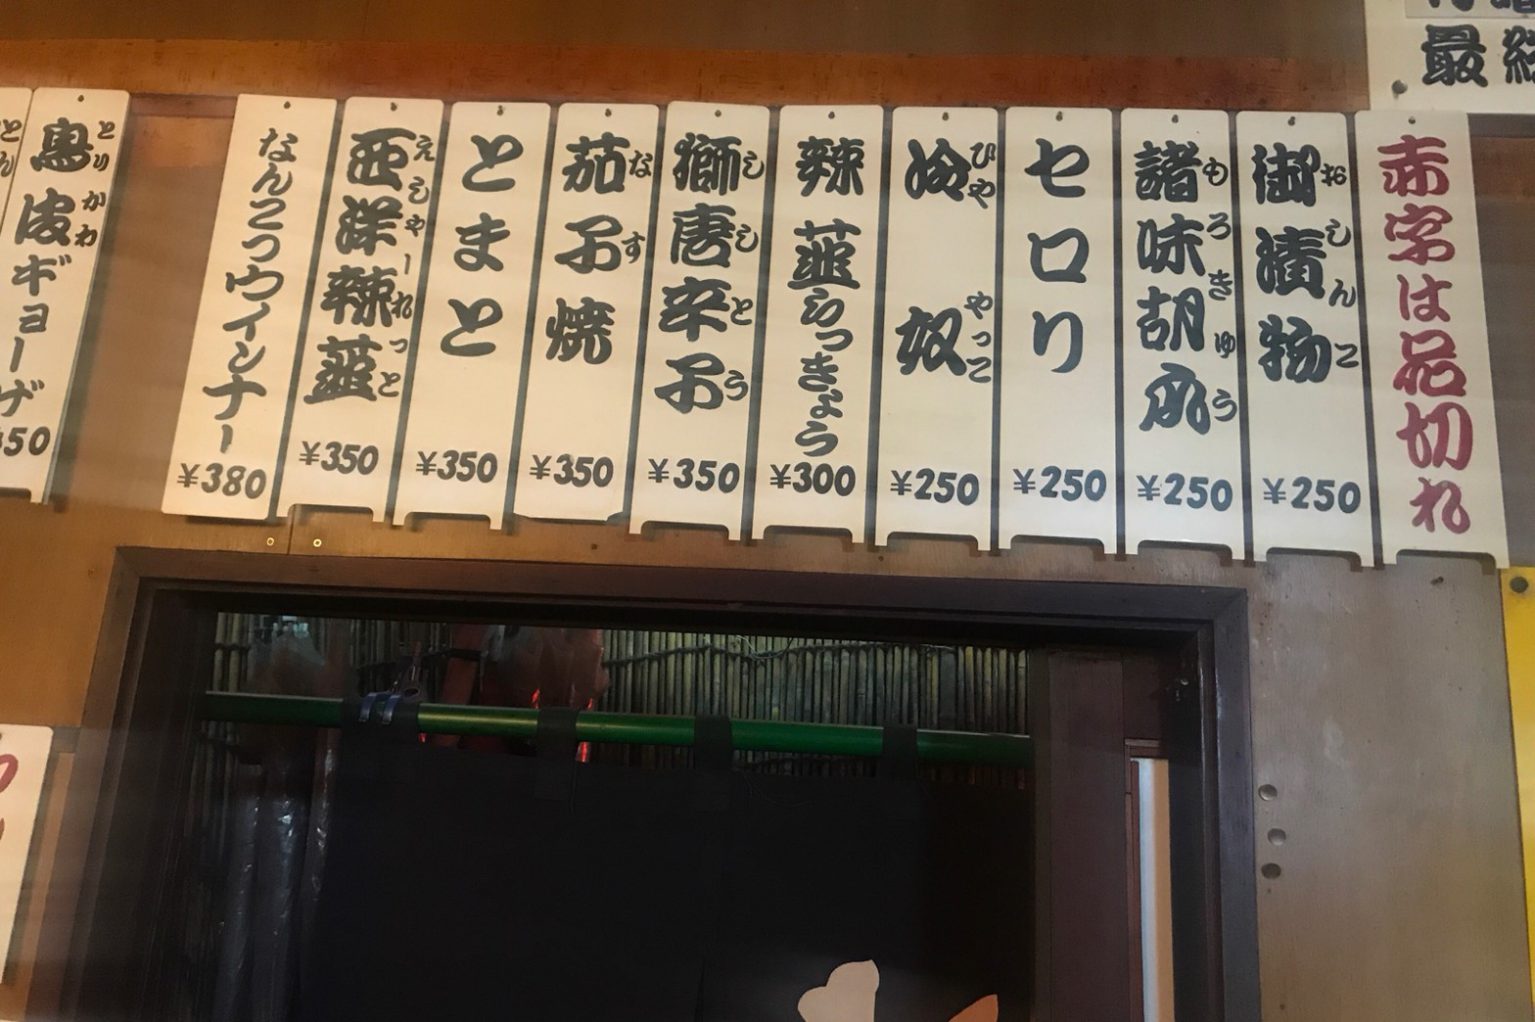 最
赤字は品切れ
御漬物
おしんこ
¥250
諸味胡瓜
もろきゅう
¥250
セロリ
¥250
冷奴
ひややっこ
¥250
辣韮らっきょう
¥300
獅唐辛子
ししとう
¥350
茄子焼
なす
¥350
とまと
¥350
亜洋辣韮
えしゃーれっと
¥350
なんこつウインナー
¥380
鳥皮ギョーザ
とりかわ
350